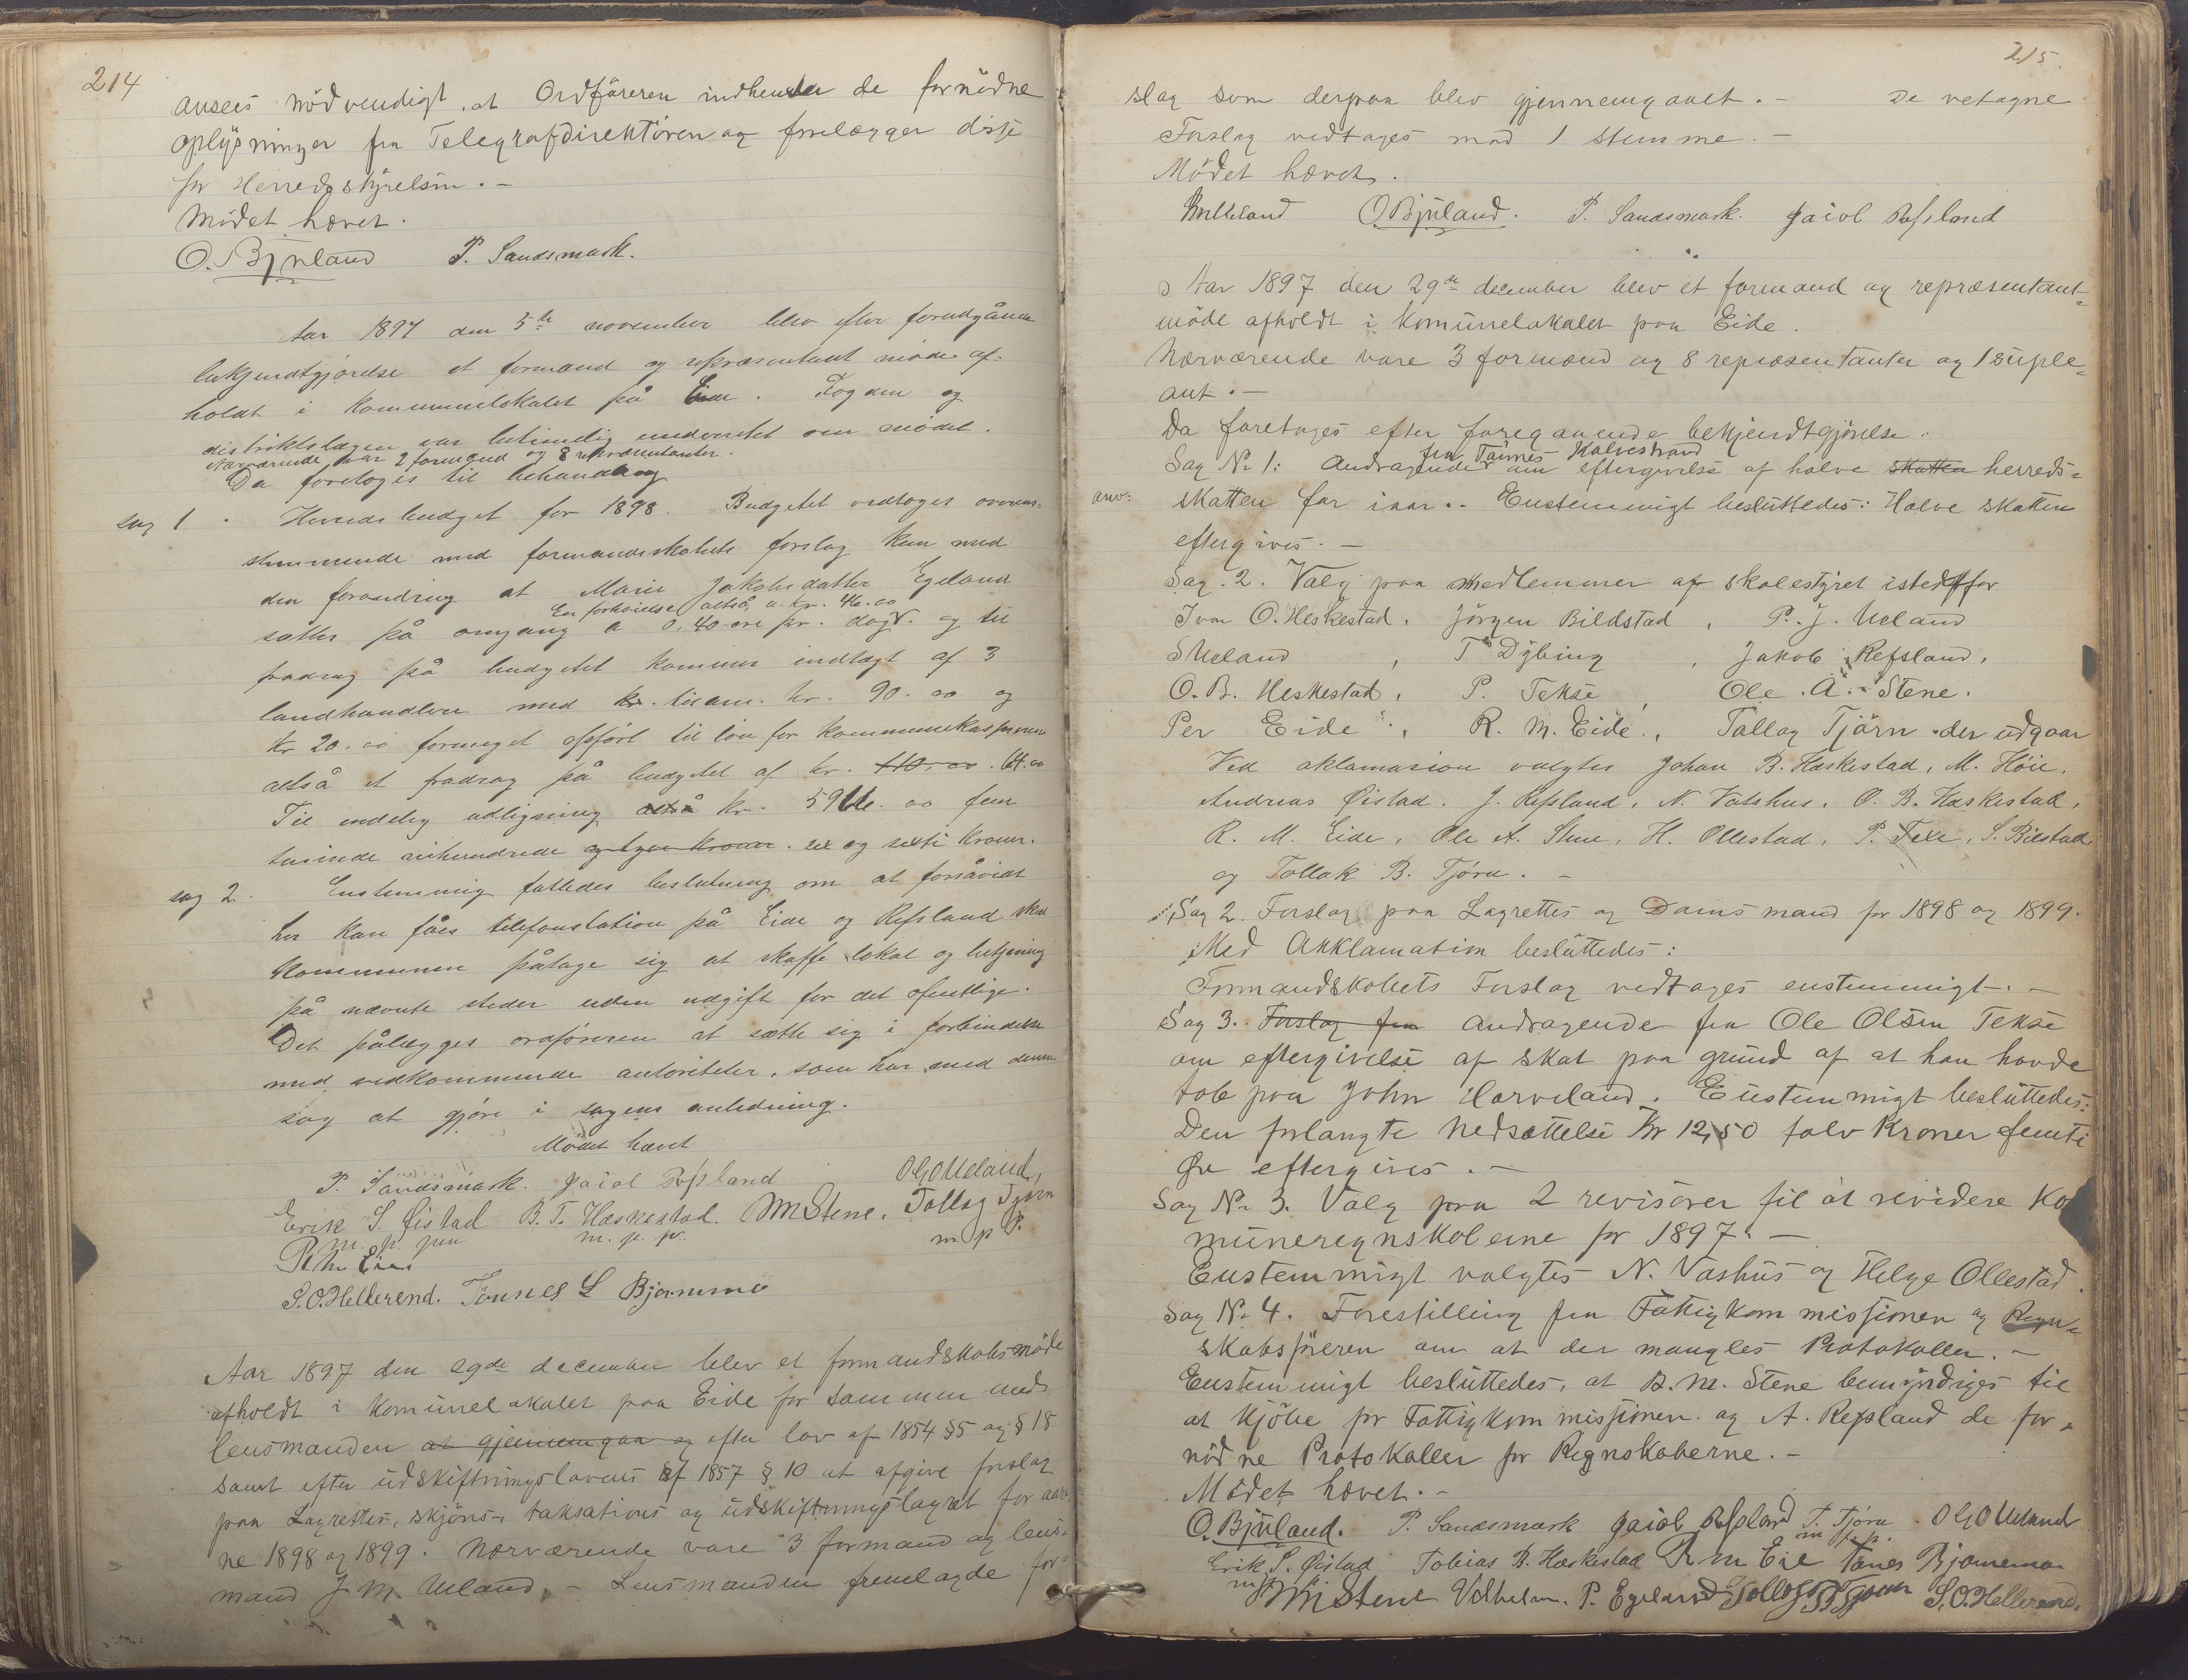 214
ansees nödvendigt, at Ordföreren indhenter de fornödne
oplysninger fra Telegrafdirektören og forelægger disse
for Herredsstyrelsen. -
Mödet hævet.
O. Bjuland P. Sandsmark.
Aar 1897 den 5te november blev efter forudgående
bekjendtgjørelse et formand og repræsentant møde af-
holdt i kommunelokalet på Eide. Fogden og
distriktslægen var betimelig underrettet om mödet.
Nærværende var 2 formænd og 8 repræsentanter.
Da foretoges til behandling
sag 1. Herredsbudget for 1898. Budgetet vedtoges overens-
stemmende med formandsskabets forslag kun med
den forandring at Marie Jakobsdatter Egeland
En forhöielse altså a. kr. 46.00
sættes på omgang a 0,40 øre pr. dag. og til
fradrag på budgetet kommer indtægt af 3
landhandlere med kr. tilsam. kr. 90.00 og
kr 20.00 formeget opført til løn for kommunekassereren
altså et fradrag på budgetet af kr. 110.00. 64.00
Til endelig udligning altså kr. 5966.00 fem
tusinde nihundrede og tyve kroner. sex og sexti kroner.
sag 2. Enstemmig fattedes beslutning om at forsåvidt
her kan fåes telefonstation på Eide og Refsland skal
Kommunen påtage sig at skaffe lokal og betjening
på nævnte steder uden udgift for det ofentlige.
Det pålægges ordføreren at sætte sig i forbindelse
med vedkommende autoriteter, som har med denne
sag at gjøre i sagens anledning.
Mödet hævet
P. Sandsmark. Jacob Refsland O G Ueland,
Erik S. Øistad B. T. Hæskestad. M Stene. Tollag Tjørn
m. p. pen m. p. p. m p P.
R M Eie.
S. O. Hellerend. Tönnes L Bjørnemo
Aar 1897 den 29de december blev et formandskabsmöde
afholdt i Komünelokalet paa Eide for sammen med
lensmanden at gjennemgaa og efter lov af 1854 §5 og §18
samt efter üdskiftningslovens af 1857 § 10 at afgive forslag
paa Lagrettes, skjöns-, taksations og üdskiftningslagret for aare-
ne 1898 og 1899. Nærværende vare 3 formænd og lens-
mand J. M. Ueland. - Lensmanden fremlagde for-
215.
slag som derpaa blev gjennemgaaet. - De vetagne
Forslag vedtages mod 1 stemme. -
Mödet hævet.
O. Bjüland. P. Sandsmark. Jacob Refsland
Aar 1897 den 29de december blev et formand og repræsentant-
möde afholdt i Komünelokalet paa Eide.
Nærværende vare 3 formænd og 8 repræsentanter og 1 süple-
ant. -
Da foretages efter foregaaende bekjendtgjörelse:
fra Tönnes Kalvestrand
Sag No 1: Andragender om eftergivelse af halve skatten herreds-
anv: skatten for iaar.. Enstemmigt beslüttedes: Halve skatten
eftergives. -
Sag. 2. Valg paa medlemmer af skolestyret istedetfor
Ivar O. Heskestad, Jörgen Bildstad, P. J. Ueland
S Ueland, T Dÿbing, Jakob Refsland,
O. B. Heskestad, P. Tekse, Ole. A. Stene.
Per Eide, R. M. Eide, Tallag Tjörn der udgaar
Ved aklamasion valgtes Johan B. Hæskestad, M. Höie,
Andreas Øistad. J. Refsland, N. Vatshus, O. B. Hæskestad,
R. M. Eide, Ole A. Stene, H. Ollestad, P. Texe, S. Bilstad,
og Tollak B. Tjørn. -
Sag 2. Forslag paa Lagrettes og Domsmænd for 1898 og 1899.
Med Akklamation beslüttedes:
Formandskabets Forslag vedtages enstemmigt. -
Sag 3. Forslag fra Andragende fra Ole Olsen Tekse
om eftergivelse af skat paa grund af at han havde
tab paa John Horveland. Enstemmigt beslüttedes:
Den forlangte Nedsættelse Kr 12,50 tolv Kroner femti
Øre eftergives. -
Sag No 3. Valg paa 2 revisorer til at revidere Ko
müneregnskaberne for 1897. -
Enstemmigt valgtes N. Vashüs og Helge Ollestad.
Sag No 4. Forestilling fra Fattigkommissionen og Regn-
skabsföreren om at der mangles Protokoller. -
Enstemmigt beslüttedes, at B. M. Stene bemyndiges til
at kjöbe for Fattigkommissionen og A. Refsland de for-
nödne Protokoller for Regnskaberne. -
Mödet hævet. -
O. Bjüland. P. Sandsmark Jacob Refsland T. Tjörn O G Ueland
m. p. p.
Erik S. Øistad Tobias B. Hæskestad R M Eie Tönes Bjørnemo
M Stene Vilhelm. P. Egeland Tollag Tjørn S. O. Hellerend.